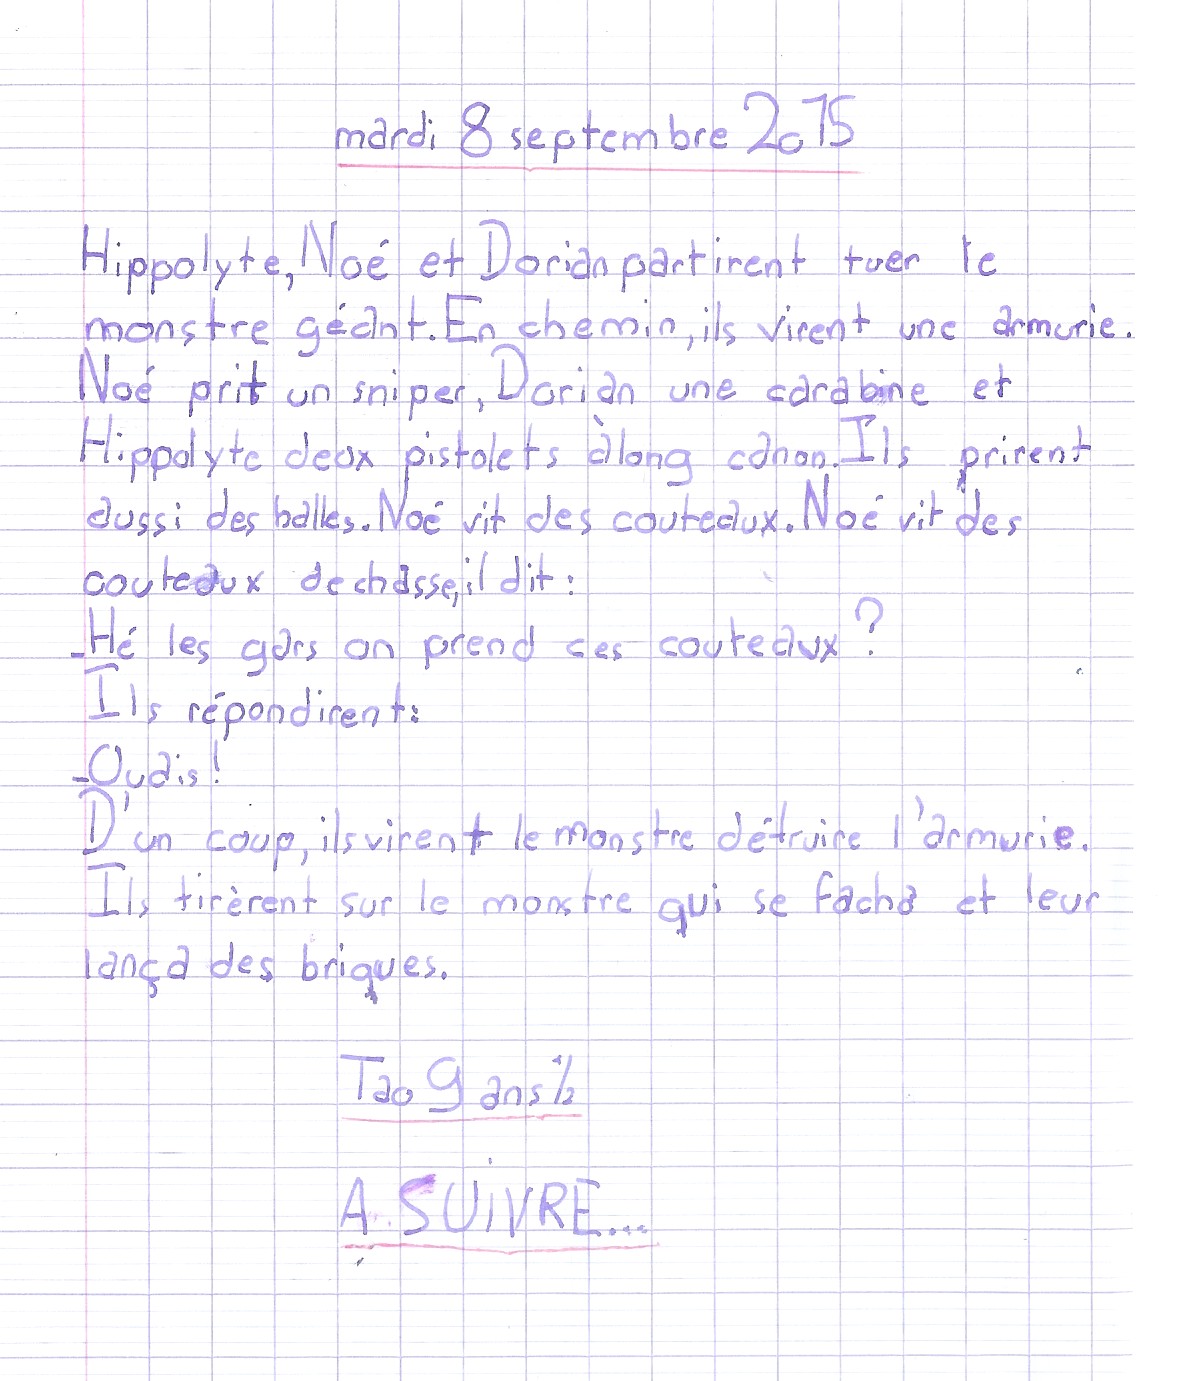 mardi 8 septembre 2015
Hippolyte, Noé et Dorian partirent tuer le
monstre géant. En chemin, ils virent une armurie.
Noé prit un sniper, Dorian une carabine et
Hippolyte deux pistolets à long canon. Ils prirent
aussi des balles. Noé vit des couteaux. Noé vit des
couteaux de chasse, il dit :
-Hé les gars on prend ces couteaux ?
Ils répondirent :
-Ouais !
D'un coup, ils virent le monstre détruire l'armurie.
Ils tirèrent sur le monstre qui se facha et leur
lança des briques.
Tao 9 ans 1/2
A SUiVRE...